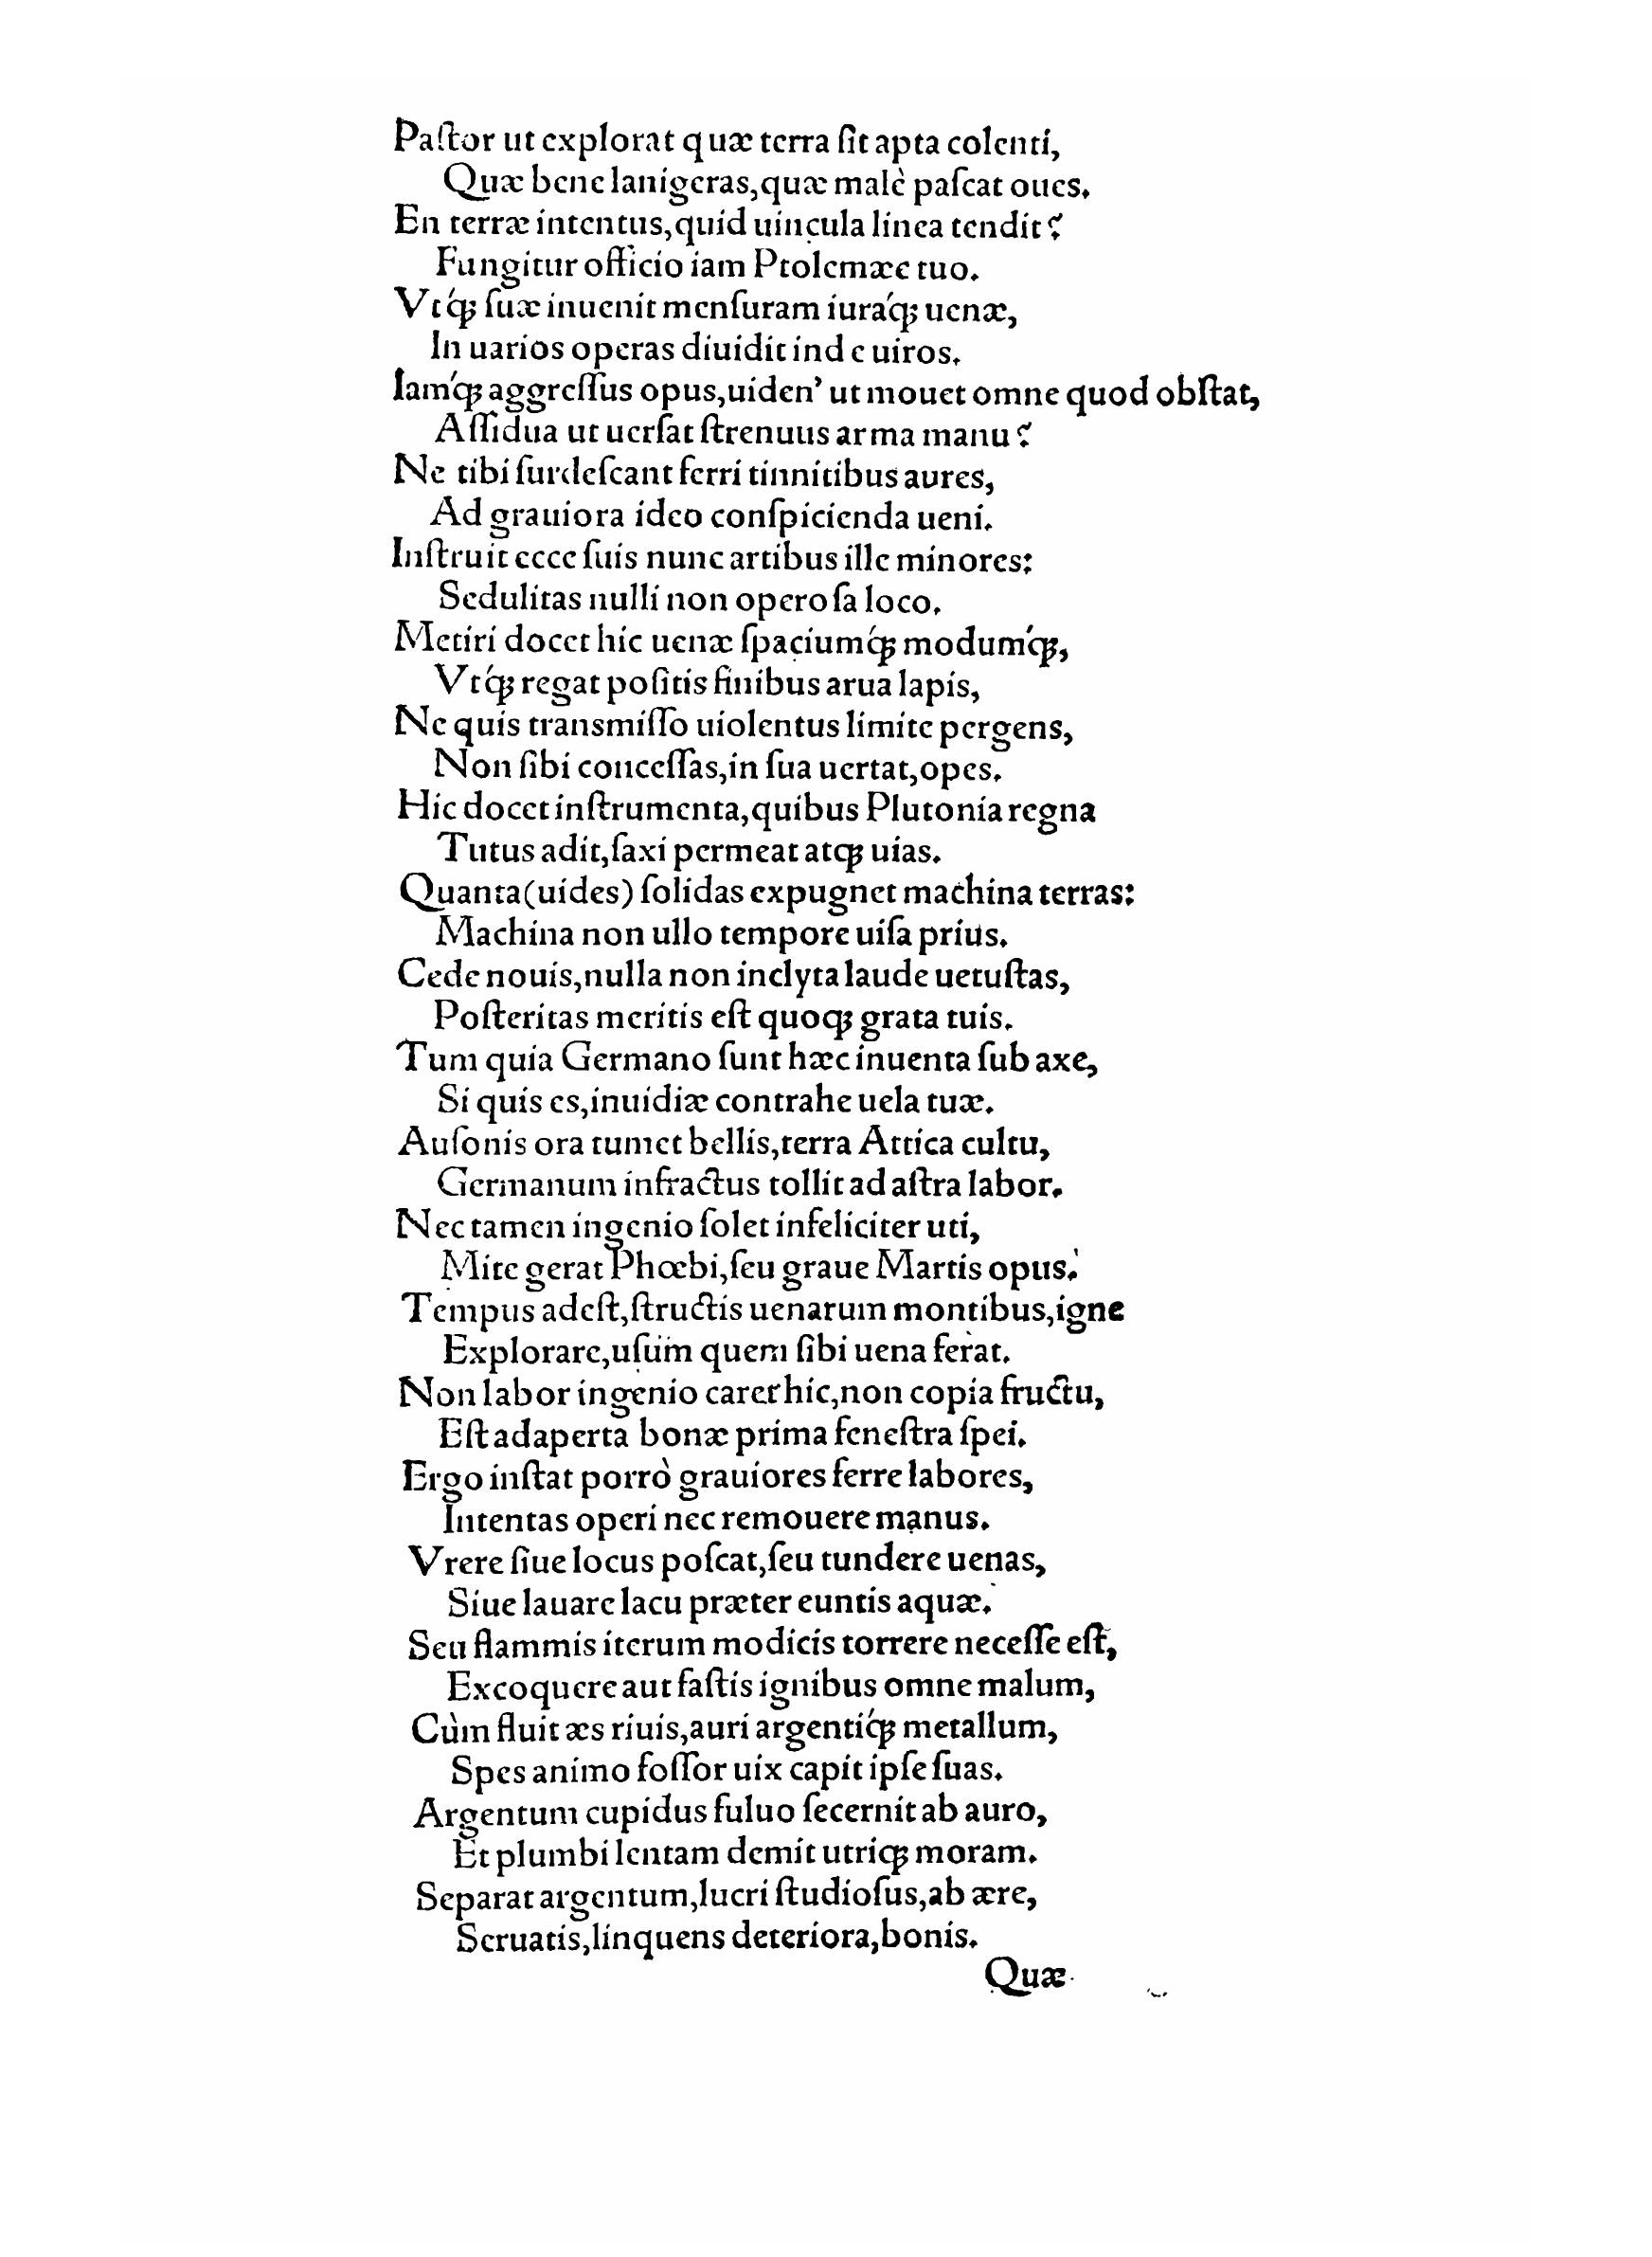 Paſtor ut explorat quæ terra ſit apta colenti,
Quæ bene lanigeras,quæ malè paſcat oues.
En terræ intentus,quid uincula linea tendit?
Fungitur officio iam Ptolemæe tuo.
Vtq́ꝫ ſuæ inuenit menſuram iuraq́ꝫ uenæ,
In uarios operas diuidit inde uiros.
Iamq́ꝫ aggreſſus opus,uiden' ut mouet omne quod obſtat,
Aſſidua ut uerſat ſtrenuus arma manu?
Ne tibi ſurdeſcant ferri tinnitibus aures,
Ad grauiora ideo conſpicienda ueni.
Inſtruit ecce ſuis nunc artibus ille minores:
Sedulitas nulli non operoſa loco.
Metiri docet hic uenæ ſpaciumq́ꝫ modumq́ꝫ,
Vtq́ꝫ regat poſitis finibus arua lapis,
Ne quis transmiſſo uiolentus limite pergens,
Non ſibi conceſſas,in ſua uertat,opes.
Hic docet inſtrumenta,quibus Plutonia regna
Tutus adit,ſaxi permeat atqꝫ uias.
Quanta(uides) ſolidas expugnet machina terras:
Machina non ullo tempore uiſa prius.
Cede nouis,nulla non inclyta laude uetuſtas,
Poſteritas meritis eſt quoqꝫ grata tuis.
Tum quia Germano ſunt hæc inuenta ſub axe,
Si quis es,inuidiæ contrahe uela tuæ.
Auſonis ora tumet bellis,terra Attica cultu,
Germanum infractus tollit ad aſtra labor.
Nec tamen ingenio ſolet infeliciter uti,
Mite gerat Phœbi,ſeu graue Martis opus.
Tempus adeſt,ſtructis uenarum montibus,igne
Explorare,uſum quem ſibi uena ferat.
Non labor ingenio caret hic,non copia fructu,
Eſt adaperta bonæ prima feneſtra ſpei.
Ergo inſtat porrò grauiores ferre labores,
Intentas operi nec remouere manus.
Vrere ſiue locus poſcat,ſeu tundere uenas,
Siue lauare lacu præter euntis aquæ.
Seu flammis iterum modicis torrere neceſſe eſt,
Excoquere aut faſtis ignibus omne malum,
Cùm fluit æs riuis,auri argentiq́ꝫ metallum,
Spes animo foſſor uix capit ipſe ſuas.
Argentum cupidus fuluo ſecernit ab auro,
Et plumbi lentam demit utriqꝫ moram.
Separat argentum,lucri ſtudioſus,ab ære,
Seruatis,linquens deteriora,bonis.
Quæ